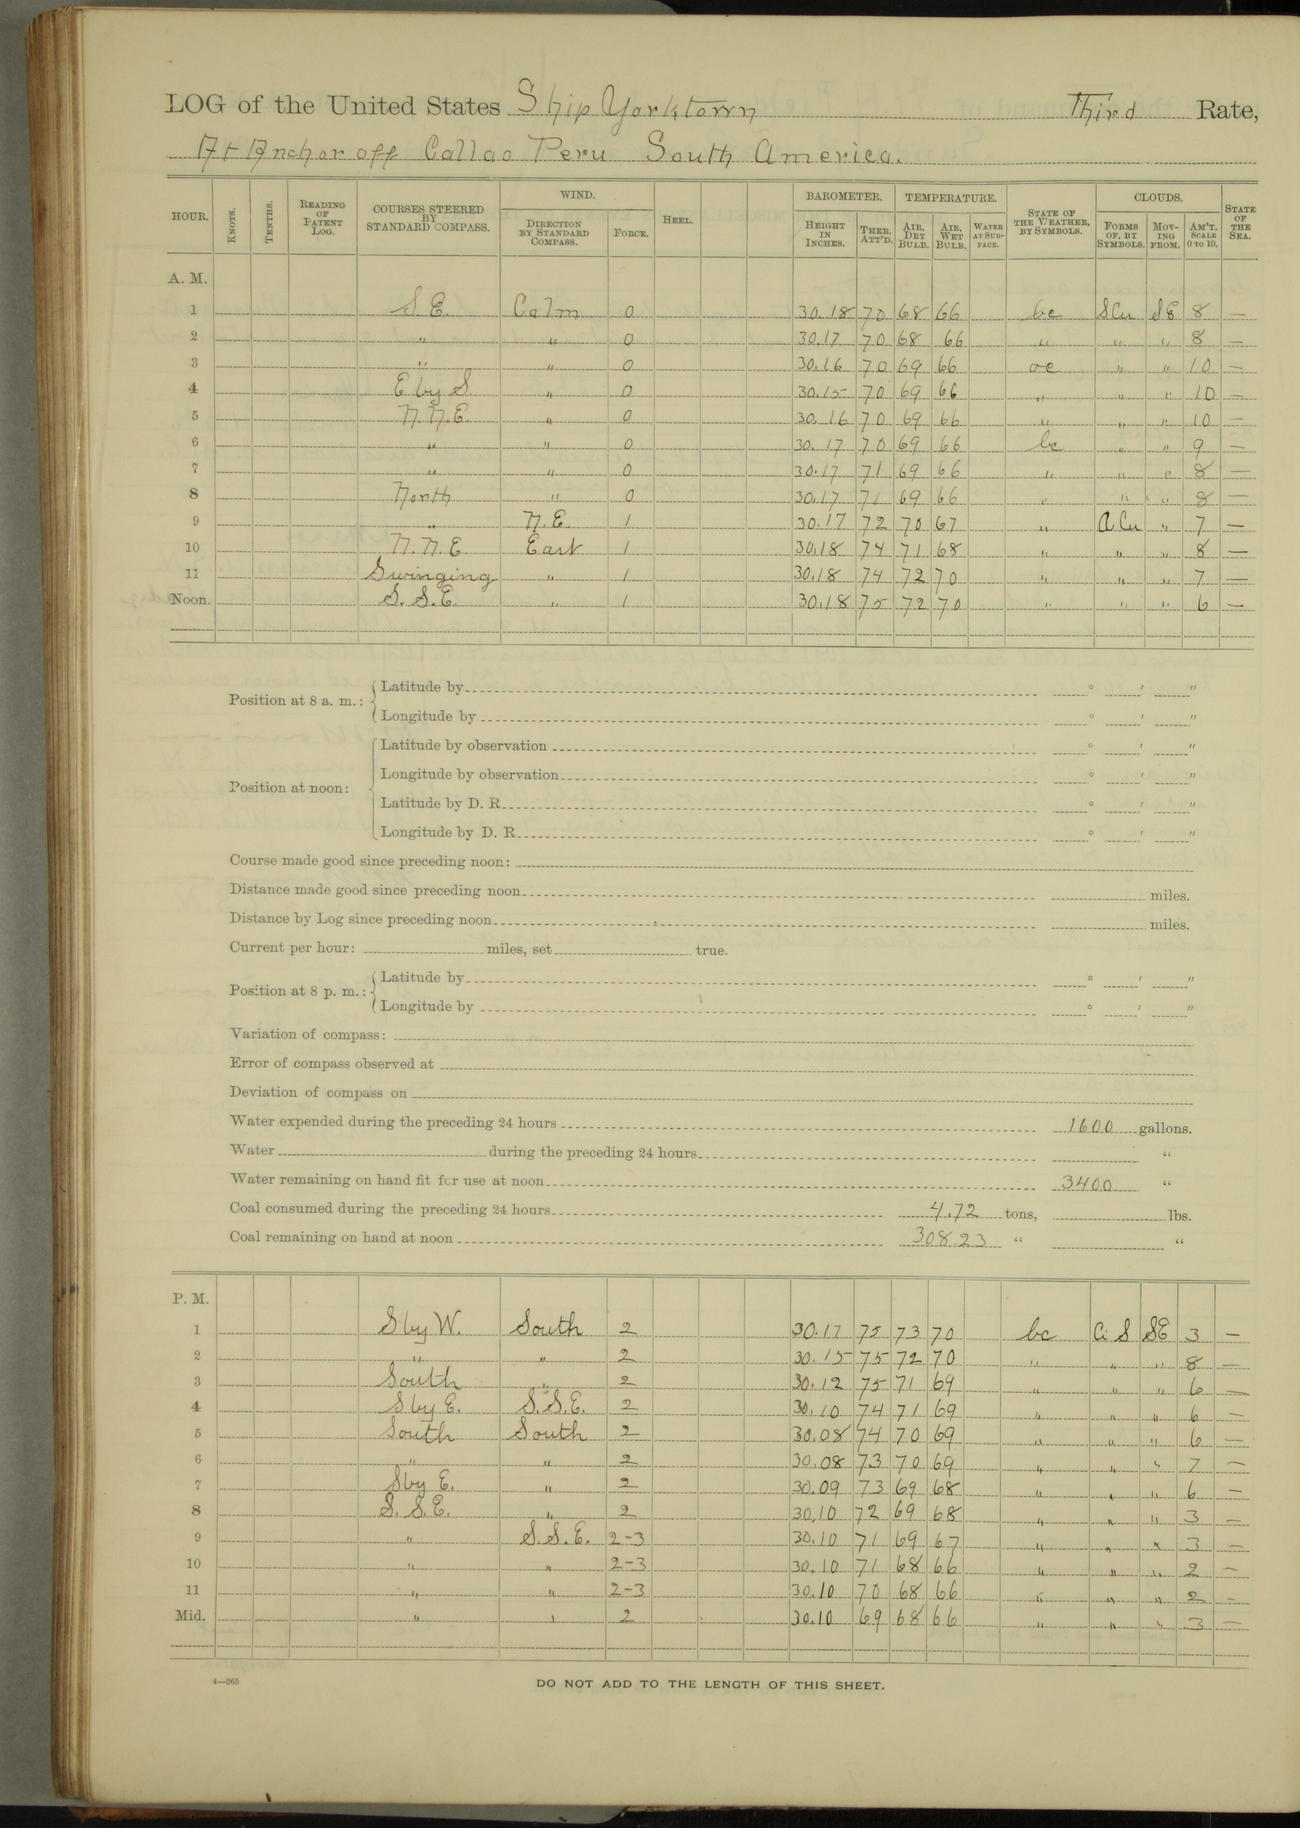 LOG of the United States Ship Yorktown Third Rate,
At Anchor off Callao Peru South America.
HOUR. KNOTS. TENTHS. READING OF PATENT LOG. COURSES STEERED BY STANDARD COMPASS. WIND. DIRECTION BY STANDARD COMPASS. FORCE. HEEL. BAROMETER. HEIGHT IN INCHES. THER. ATT'D. TEMPERATURE. AIR, DRY BULB. AIR, WET BULB. WATER AT SURFACE. STATE OF THE WEATHER, BY SYMBOLS. CLOUDS. FORMS OF, BY SYMBOLS. MOVING FROM. AM'T. SCALE 0 TO 10. STATE OF THE SEA.
A. M.
1 S.E. Calm 0 30.18 70 68 66 bc S Cu SE 8 —
2 " " 0 30.17 70 68 66 " " " 8 —
3 " " 0 30.16 70 69 66 oc " " 10 —
4 E by S. " 0 30.15 70 69 66 " " " 10 —
5 N.N.E. " 0 30.16 70 69 66 " " " 10 —
6 " " 0 30.17 70 69 66 bc " " 9 —
7 " " 0 30.17 71 69 66 " " " 8 —
8 North " 0 30.17 71 69 66 " " " 8 —
9 " N.E. 1 30.17 72 70 67 " A Cu " 7 —
10 N.N.E East 1 30.18 74 71 68 " " " 8 —
11 Swinging " 1 30.18 74 72 70 " " " 7 —
Noon. S.S.E. " 1 30.18 75 72 70 " " " 6 —
Position at 8 a. m.: Latitude by ° ′ ″
Longitude by ° ′ ″
Position at noon: Latitude by observation ° ′ ″
Longitude by observation ° ′ ″
Latitude by D. R. ° ′ ″
Longitude by D. R. ° ′ ″
Course made good since preceding noon:
Distance made good since preceding noon miles.
Distance by Log since preceding noon miles.
Current per hour: miles, set true.
Position at 8 p. m.: Latitude by ° ′ ″
Longitude by ° ′ ″
Variation of compass:
Error of compass observed at
Deviation of compass on
Water expended during the preceding 24 hours 1600 gallons.
Water during the preceding 24 hours "
Water remaining on hand fit for use at noon 3400 "
Coal consumed during the preceding 24 hours 4.72 tons, lbs.
Coal remaining on hand at noon 308.23 " "
P. M.
1 S by W. South 2 30.17 75 73 70 bc Ci S SE 3 —
2 " " 2 30.15 75 72 70 " " " 8 —
3 South " 2 30.12 75 71 69 " " " 6 —
4 S by E. S.S.E. 2 30.10 74 71 69 " " " 6 —
5 South South 2 30.08 74 70 69 " " " 6 —
6 " " 2 30.08 73 70 69 " " " 7 —
7 S by E. " 2 30.09 73 69 68 " " " 6 —
8 S.S.E. " 2 30.10 72 69 68 " " " 3 —
9 " S.S.E. 2-3 30.10 71 69 67 " " " 3 —
10 " " 2-3 30.10 71 68 66 " " " 2 —
11 " " 2-3 30.10 70 68 66 " " " 2 -
Mid. " " 2 30.10 69 68 66 " " " 3 —
4—265
DO NOT ADD TO THE LENGTH OF THIS SHEET.